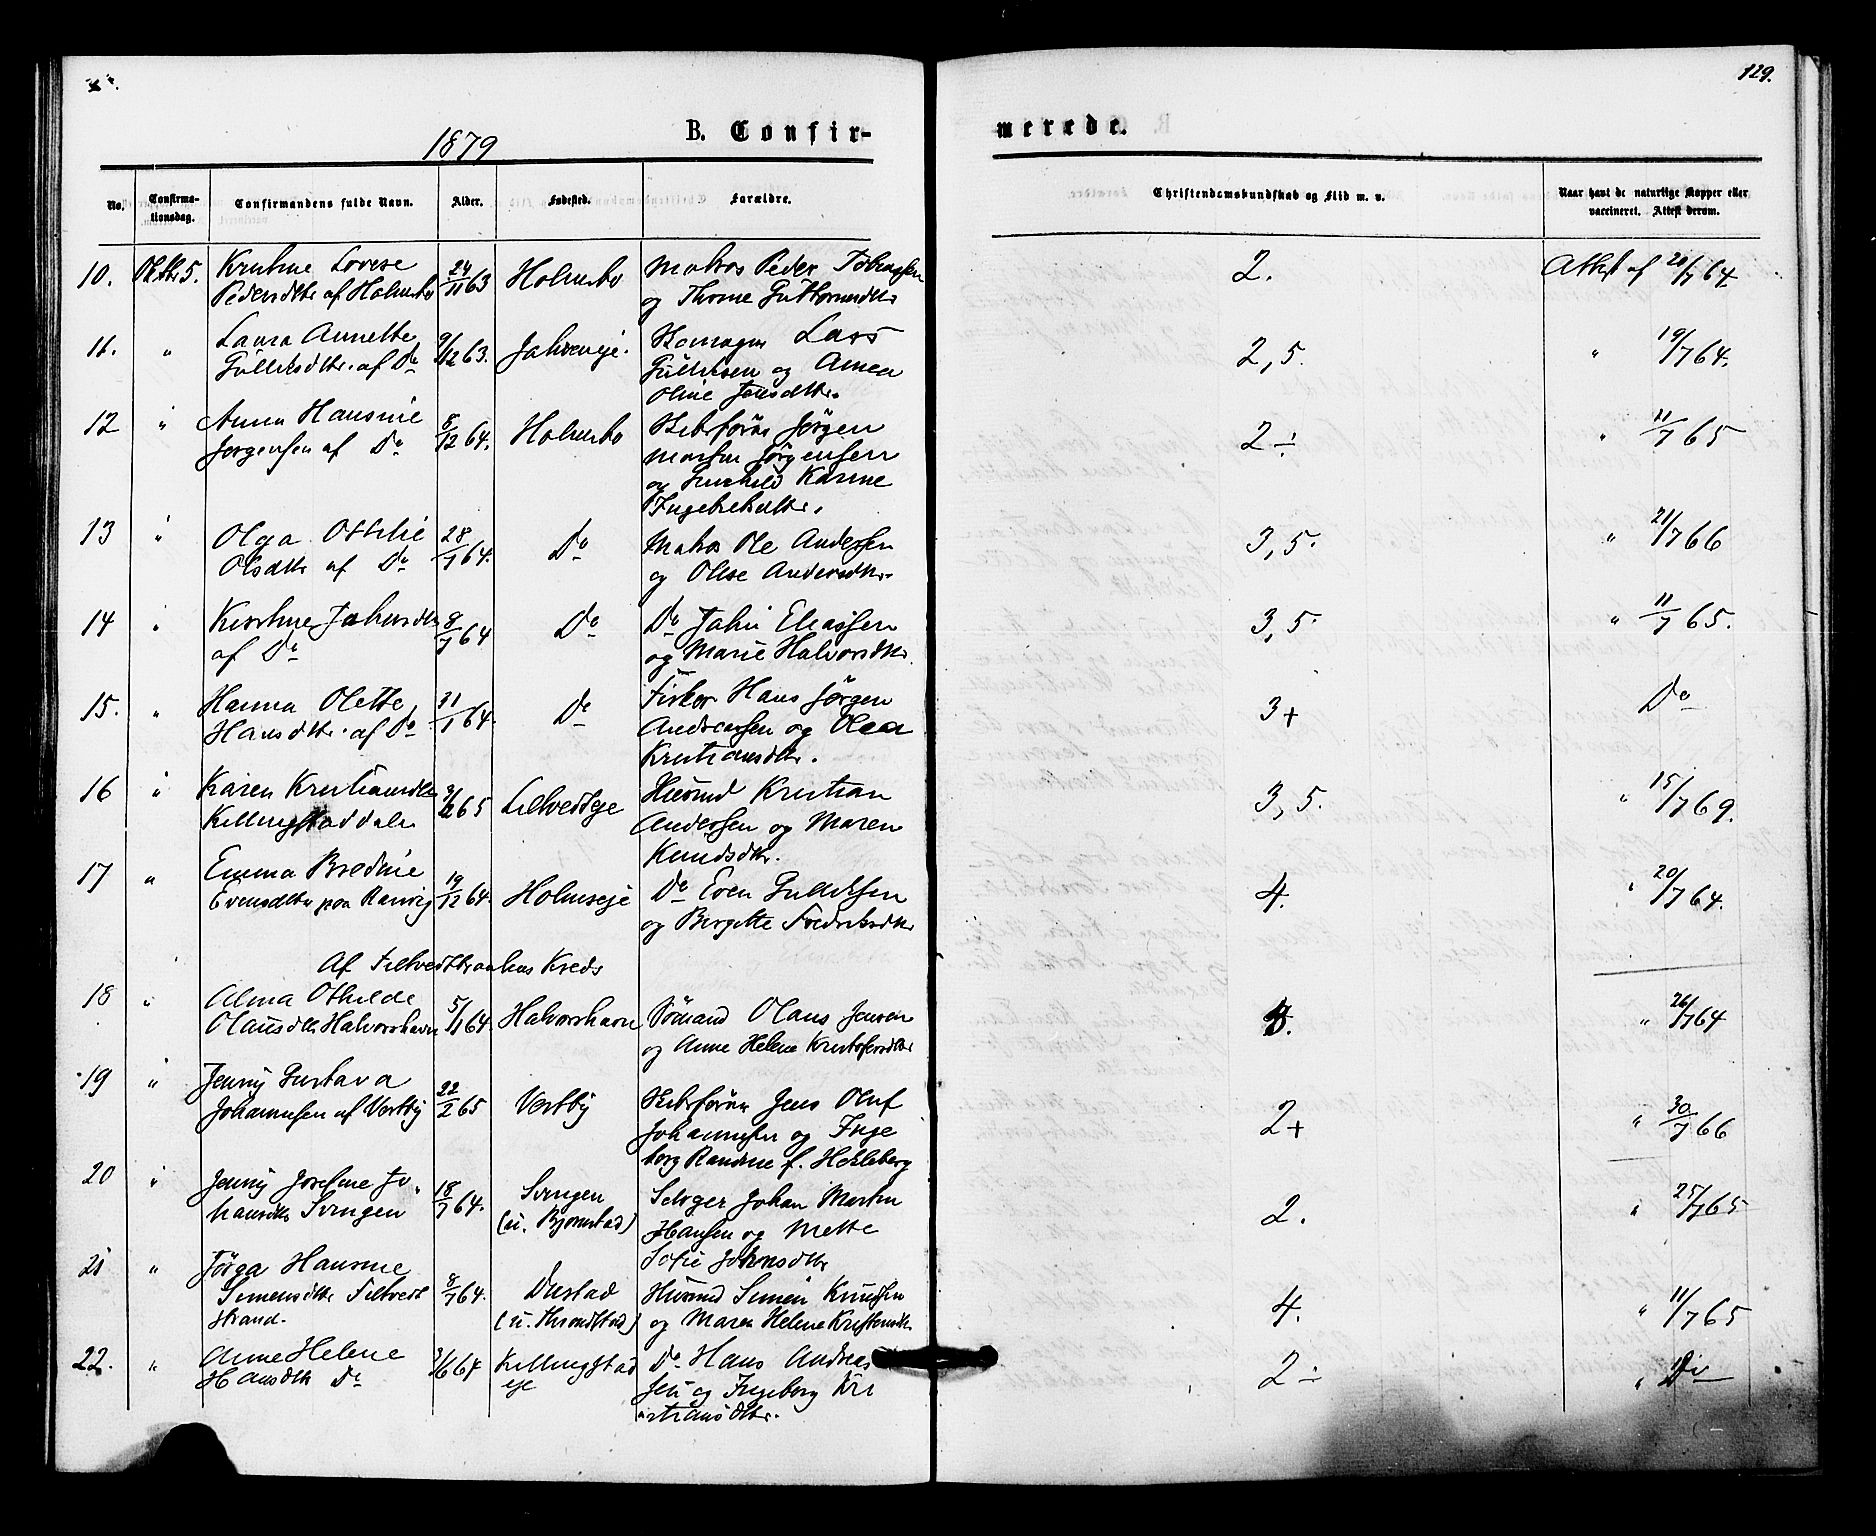 129.
1879
B. Confir-
merede.
No.
Confirma-
tionsdag.
Confirmandens fulde Navn.
Alder.
Fødested.
Forældre.
Christendomskundskab og Flid m. v.
Naar havt de naturlige Kopper eller
vaccineret. Attest derom.
10. Oktbr 5. Kristine Lovise 24/11 63 Holmsbo Matros Peder 2. Attest af 20/7 64.
Pedersdtr af Holmsbo og Thorine Guttormsdtr
11. " Laura Annette 9/12 63. Lars 2,5. " 19/7 64.
Gulliksdtr. af Do Gulliksen og Anna
Oline Jensdtr.
12 " Anna Hansine 8/12 64. Holmsbo Skibsförer Jörgen 2÷ " 11/7 65
Jorgensen af Do Jörgensen
og Gunhild Karine
Ingebretsdtr.
13 " Olga Othilie 28/1 64. Do Matros Ole Andersen 3,5. " 21/7 66
Olsdtr af Do og Andersdtr.
14 " Kristine Johnsdtr 8/7 64 Do Do John Eliassen 3,5. " 11/7 65.
af Do og Marie Halvorsdtr.
15. " Hanna Olette 31/1 64. Do Fisker Hans Jörgen 3+ Do
Hansdtr. af Do Andreassen og Olea
Kristiansdtr.
16 " Karen Kristiansdtr 65 Husmd Kristian 3,5. " 15/7 69.
Killingstaddalen Andersen og Maren
Knudsdtr.
17 " Emma Bredine 19/12 64. Holmseje Do Even Gulliksen 4. " 20/7 64.
Evensdtr paa Ranvig og Birgitte Fredriksdtr
Af Filtvedtstrandens Kreds
18 " Alma Othilde 5/11 64. Halvorshavn Sömand Olaus Jensen " 26/7 64
Olausdtr Halvorshavn og Anne Helene Kristofersdtr
19 " Jenny Gustava 22/2 65 Vestby Skibsförer Jens Oluf 2+ " 30/7 66
Johannesen af Vestby Johannesen og Inge
borg Randine f. Hekleberg
20 " Jenny Josefine Jo- 18/7 64. Svingen Selveger Johan Martin 2. " 25/7 65
hansdtr Svingen (u. Bjornstad) Hansen og Mette
Sofie Johnsdtr
21 " Jörga Hansine 8/7 64. Dustad Husmd Simen Knudsen 4. " 11/7 65
Simensdtr Filtvedt (u. Throndstad) og Maren Helene Kristensdtr
strand.
22. " Anne Helene 64 Killingstad Do Hans Andreas 2÷ " Do
Hansdtr Do eje sen og Ingeborg Kri
stiansdtr.